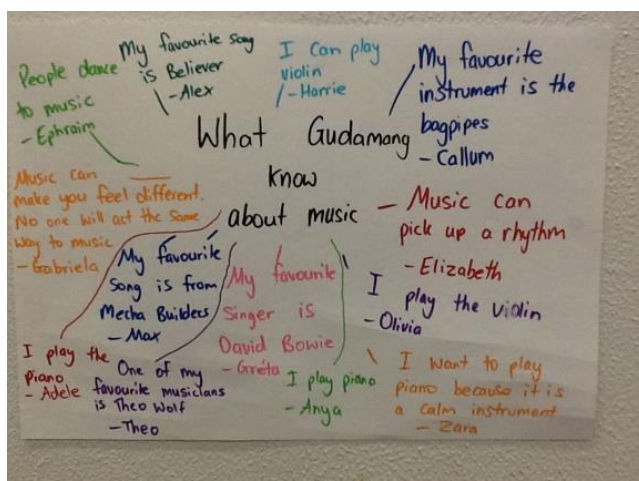 What Gudamang
know
about music
People dance
to music
- Ephraim
My favourite song
is Believer
- Alex
I can play
violin
- Harrie
My favourite
instrument is the
bagpipes
- Callum
Music can
make you feel different.
No one will act the same
way to music
- Gabriela
Music can
pick up a rhythm
- Elizabeth
My favourite
song is from
Mecha Builders
- Max
My favourite
Singer is
David Bowie
- Greta
I play the violin
- Olivia
I play the
piano
- Adele
One of my
favourite musicians
is Theo Wolf
- Theo
I play piano
- Anya
I want to play
piano because it is
a calm instrument
- Zara